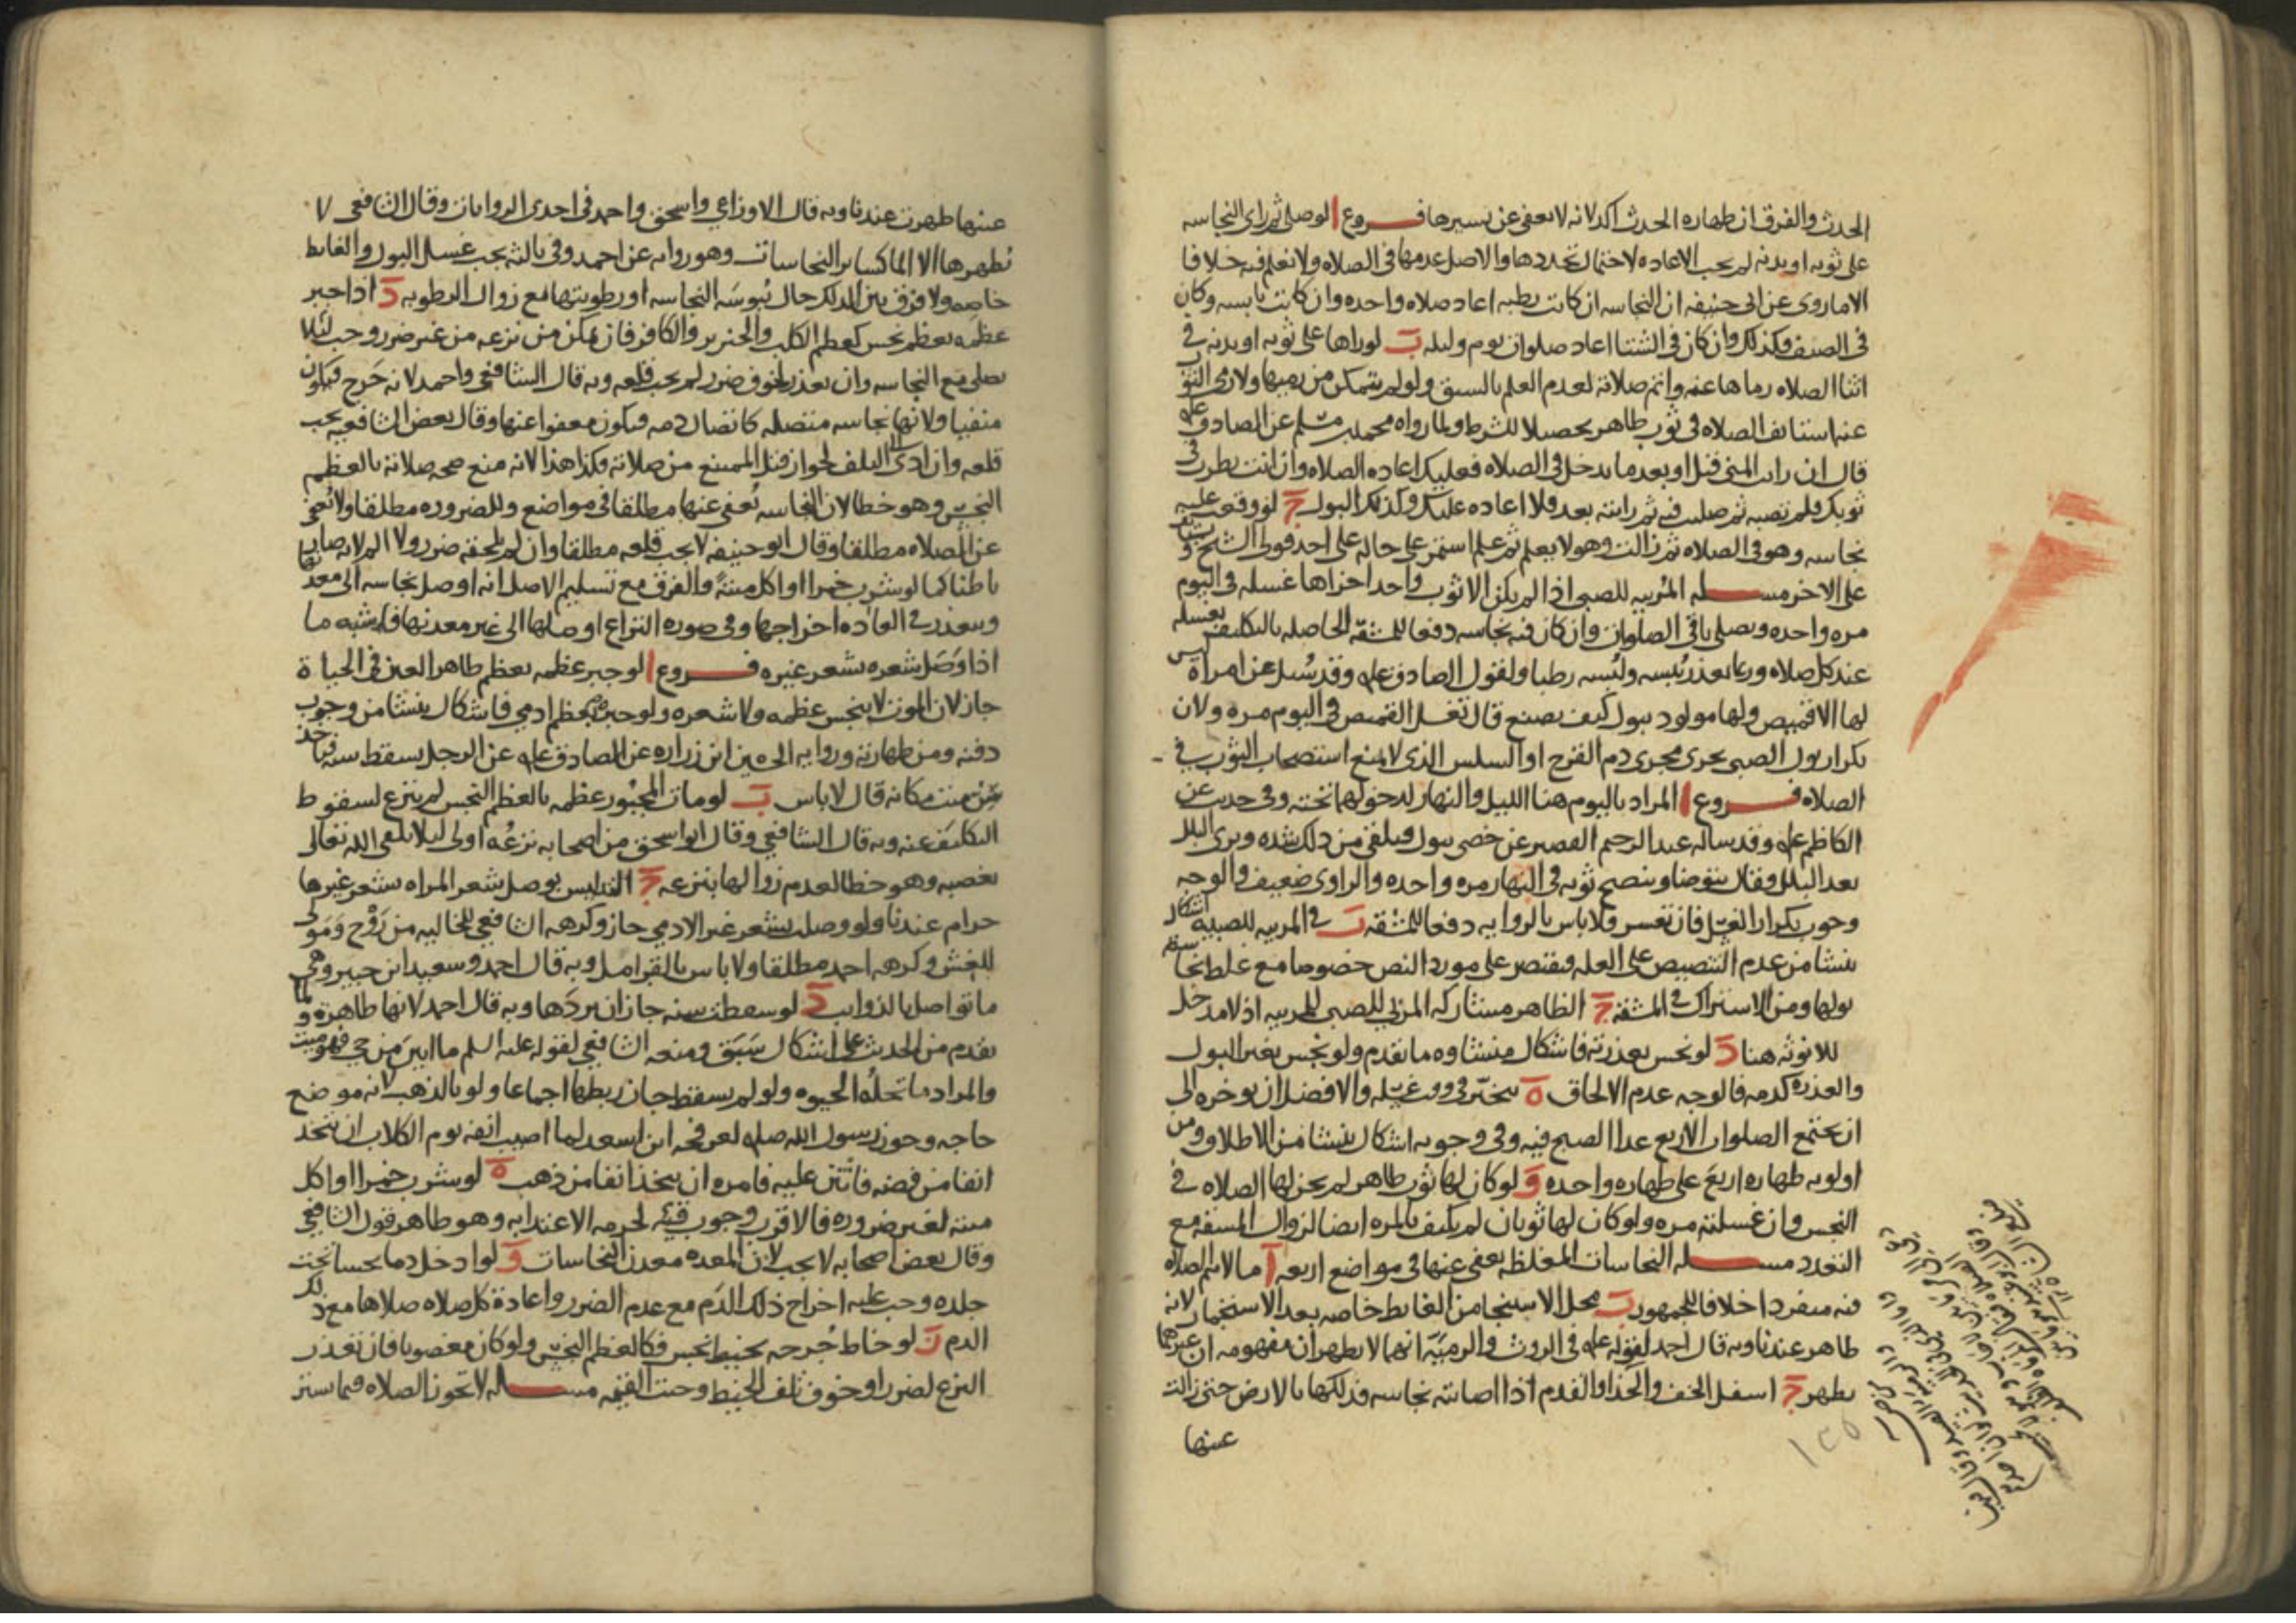 الحدث والفرق ان طهاره الحدث اكد لانه لا يعفى عن يسيرها فروع ا لو صلى ثم راى النجاسه
على ثوبه او بدنه لم يجب الاعاده لاحتمال تجددها والاصل عدمها في الصلاه ولا نعلم فيه خلافا
الا ما روى عن ابى حنيفه ان النجاسه ان كانت رطبه اعاد صلاه واحده وان كانت يابسه وكان
في الصيف فكذلك وان كان في الشتا اعاد صلوات يوم وليله ب لو راها على ثوبه او بدنه في
اثنا الصلاه رماها عنه واتم صلاته لعدم العلم بالسبق ولو لم يتمكن من رميها ولا رمى الثوب
عنه استانف الصلاه في ثوب طاهر تحصيلا للشرط ولما رواه محمد بن مسلم عن الصادق عليه
قال ان رايت المنى قبل او بعد ما تدخل في الصلاه فعليك اعاده الصلاه وان انت نظرت في
ثوبك فلم تصبه ثم صليت فيه ثم رايته بعد فلا اعاده عليك وكذلك البول ج لو وقعت عليه
نجاسه وهو في الصلاه ثم زالت وهو لا يعلم ثم علم استمر على حاله على احد قولى الشيخ و
على الاخر مسله المربيه للصبى اذا لم يكن الا ثوب واحد اجزاها غسله في اليوم
مره واحده وتصلى باقى الصلوات وان كان فيه نجاسه دفعا للمشقه الحاصله بالتكليف بغسله
عند كل صلاه وربما تعذر يبسه ولبسه رطبا ولقول الصادق عليه وقد سُيل عن امراة ليس
لها الا قميص ولها مولود يبول كيف تصنع قال تغسل القميص في اليوم مرة ولان
تكرار بول الصبى يجرى مجرى دم القرح او السلس الذى لا يمنع استصحاب الثوب في
الصلاه فروع ا المراد باليوم هنا الليل والنهار لدخولهما تحته وفى حديث عن
الكاظم عليه وقد ساله عبد الرحيم القصير عن خصى يبول فيلقى من ذلك شده ويرى البلل
بعد البلل فقال يتوضا وينضح ثوبه في النهار مره واحده والراوى ضعيف والوجه
وجوب تكرار الغسل فان تعسر فلا باس بالروايه دفعا للمشقه ب في المربيه للصبيه اشكال
ينشا من عدم التنصيص على العله فيقتصر على مورد النص خصوصا مع غلظ نجاسه
بولها ومن الاشتراك في المشقه ج الظاهر مشاركه المربى للصبى للمربيه اذ لا مدخل
للانوثه هنا د لو نجس بعذرته فاشكال منشاوه ما تقدم ولو نجس بغير البول
والعذره كدمه فالوجه عدم الالحاق ه يتخير في وقت غسله والافضل ان يوخره الى
ان يجتمع الصلوات الاربع عدا الصبح فيه وفى وجوبه اشكال ينشا من الاطلاق ومن
اولويه طهاره اربع على طهاره واحده و لو كان لها ثوب طاهر لم يجز لها الصلاه في
النجس وان غسلته مره ولو كان لها ثوبان لم يكتف بالمره ايضا لزوال المشقه مع
التعدد مسله النجاسات المغلظه يعفى عنها في مواضع اربعه ا ما لا يتم الصلاه
فيه منفردا خلافا للجمهور ب محل الاستنجا من الغايط خاصه بعد الاستجمار لانه
طاهر عندنا وبه قال احمد لقوله عليه في الروث والرمه انهما لا يطهران مفهومه ان غيرهما
يطهر ج اسفل الخف والحذا والقدم اذا اصابته نجاسه فدلكها بالارض حتى زالت
عنها
عينها طهرت عندنا وبه قال الاوزاعي واسحق واحمد في احدى الروايات وقال الشافعى لا
يُطهرها الا الما كساير النجاسات وهو روايه عن احمد وفى ثالثه يجب غسل البول والغايط
خاصه ولا فرق بين الدلك حال يُبوسَه النجاسه او رطوبتها مع زوال الرطوبه د اذا جبر
عظمه بعظم نجس كعظم الكلب والخنزير والكافر فان تمكن من نزعه من غير ضرر وجب لئلا
يصلى مع النجاسه وان تعذر لخوف ضرر لم يجب قلعه وبه قال الشافعى واحمد لانه حَرج فيكون
منفيا ولانها نجاسه متصله كاتصال دمه فيكون معفوا عنها وقال بعض الشافعيه يجب
قلعه وان ادى الى التلف لجواز قتل الممتنع من صلاته وكذا هذا لانه منع صحه صلاته بالعظم
النجس وهو خطا لان النجاسه يُعفى عنها مطلقا في مواضع وللضروره مطلقا ولا يُعفى
عن الصلاه مطلقا وقال ابو حنيفه لا يجب قلعه مطلقا وان لم يلحقه ضرر ولا الم لانه صار
باطنا كما لو شرب خمرا او اكل ميتةً والفرق مع تسليم الاصل انه اوصل نجاسه الى معدنها
ويتعذر في العاده اخراجها وفى صوره النزاع اوصلها الى غير معدنها فاشبه ما
اذا وَصَل شعره بشعر غيره فروع ا لو جبر عظمه بعظم طاهر العين في الحياة
جاز لان الموت لا ينجس عظمه ولا شعره ولو جبره بعظم ادمي فاشكال ينشا من وجوب
دفنه ومن طهارته وروايه الحسين ابن زراره عن الصادق عليه عن الرجل يسقط سنه فياخذ
سن ميت مكانه قال لا باس ب لو مات المجبور عظمه بالعظم النجس لم ينزع لسقوط
التكليف عنه وبه قال الشافعي وقال ابو اسحق من اصحابه نزعُه اولى ليلا يلقى الله تعالى
بمعصيه وهو خطا لعدم زوالها بنزعه ج التدليس بوصل شعر المراه بشعر غيرها
حرام عندنا ولو وصلت بشعر غير الادمي جاز وكرهه الشافعي للخاليه من زَوْج وَمَولى
للغش وكرهه احمد مطلقا ولا باس بالقرامل وبه قال احمد وسعيد ابن جبير وهى
ما تواصل بالذوايب د لو سقطت سنه جاز ان يردّها وبه قال احمد لانها طاهرة ولما
تقدم من الحديث على اشكال سَبَق ومنعه الشافعي لقوله عليه السلم ما ابين من حي فهو ميت
والمراد ما تحلُه الحيوه ولو لم يسقط جاز ربطها اجماعا ولو بالذهب لانه موضع
حاجه وجوز رسول الله صلى لعرفجه ابن اسعد لما اصيب انفه يوم الكلاب ان يتخذ
انفا من فضه فانتن عليه فامره ان يتخذ انفا من ذهب ه لو شرب خمرا او اكل
ميته لغير ضروره فالاقرب وجوب قيئه لحرمه الاغتذا به وهو ظاهر قول الشافعي
وقال بعض اصحابه لا يجب لان المعده معدن النجاسات و لو ادخل دما نجسا تحت
جلده وجب عليه اخراج ذلك الدم مع عدم الضرر واعادة كل صلاه صلاها مع ذلك
الدم ز لو خاط جُرحه بخيط نجس فكالعظم النجس ولو كان مغصوبا فان تعذر
النزع لضرر او خوف تلف الخيط وجبت القيمه مسله لا تجوز الصلاه فيما يستر